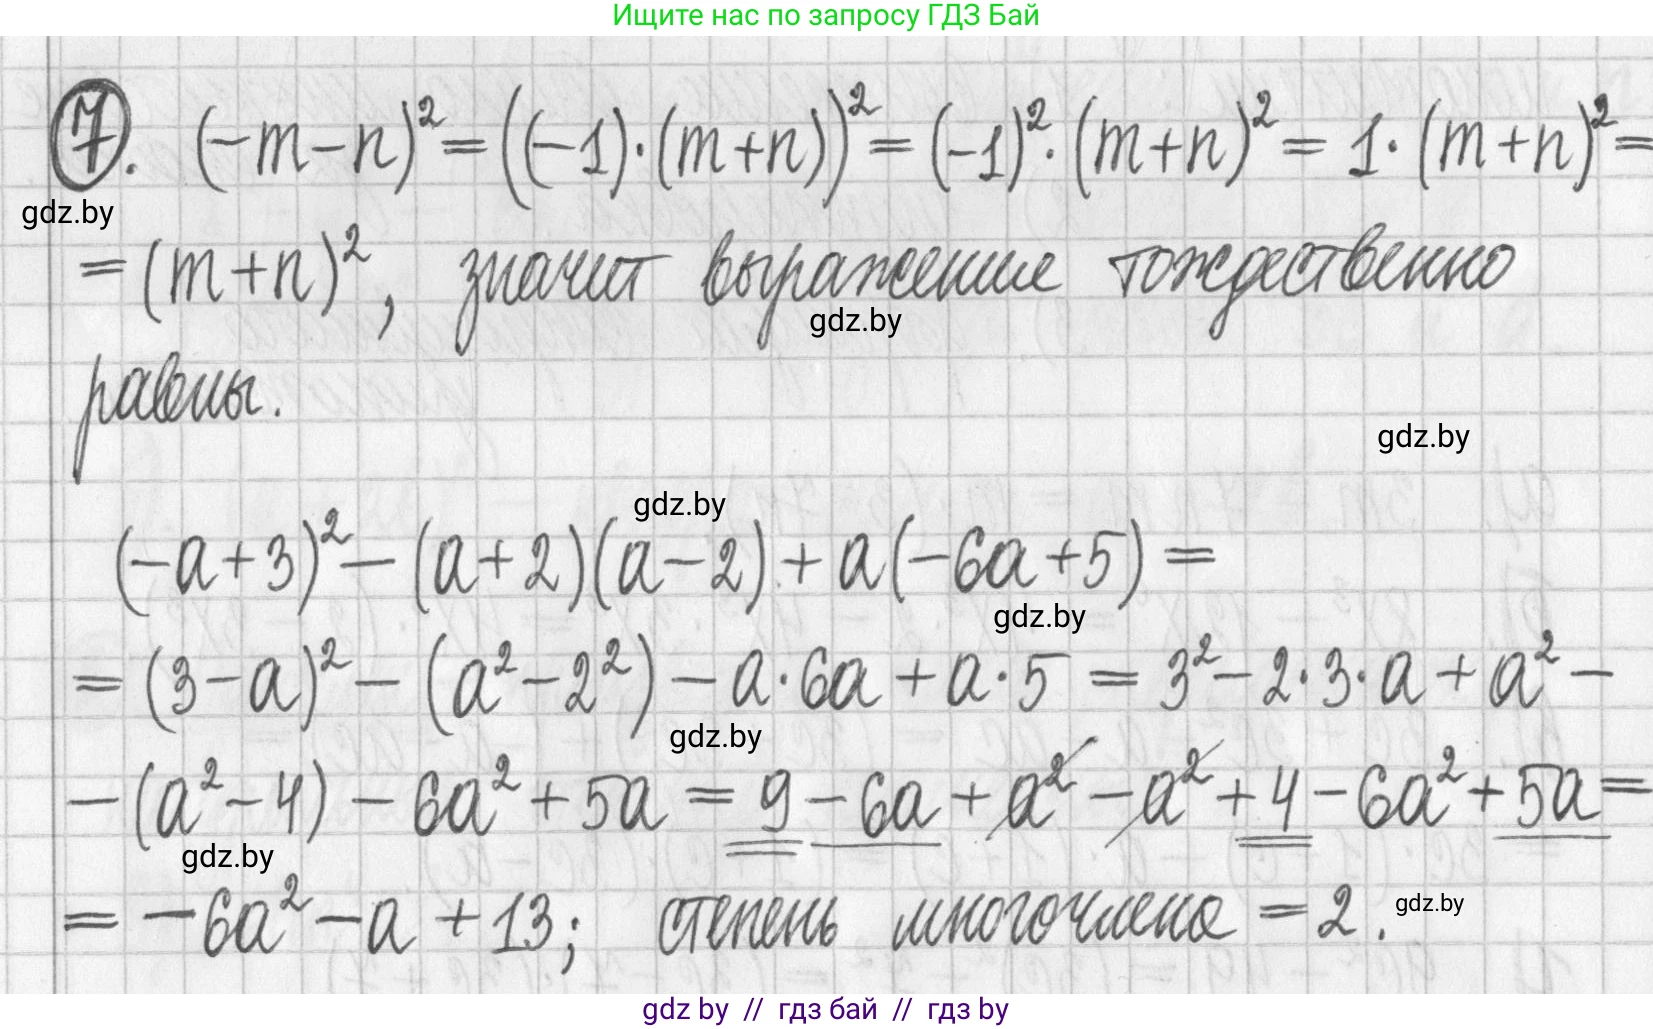 Ищите нас по запросу ГДЗ Бай
7. (-m-n)²=((-1)·(m+n))²=(-1)²·(m+n)²=1·(m+n)²=
gdz.by
=(m+n)², значит выражение тождественно
gdz.by
равны.
gdz.by
gdz.by
(-a+3)²-(a+2)(a-2)+a(-6a+5)=
gdz.by
=(3-a)²-(a²-2²)-a·6a+a·5=3²-2·3·a+a²-
gdz.by
-(a²-4)-6a²+5a=9-6a+a²-a²+4-6a²+5a=
gdz.by
=-6a²-a+13; степень многочлена =2.
gdz.by
gdz by // гдз бай // гдз by